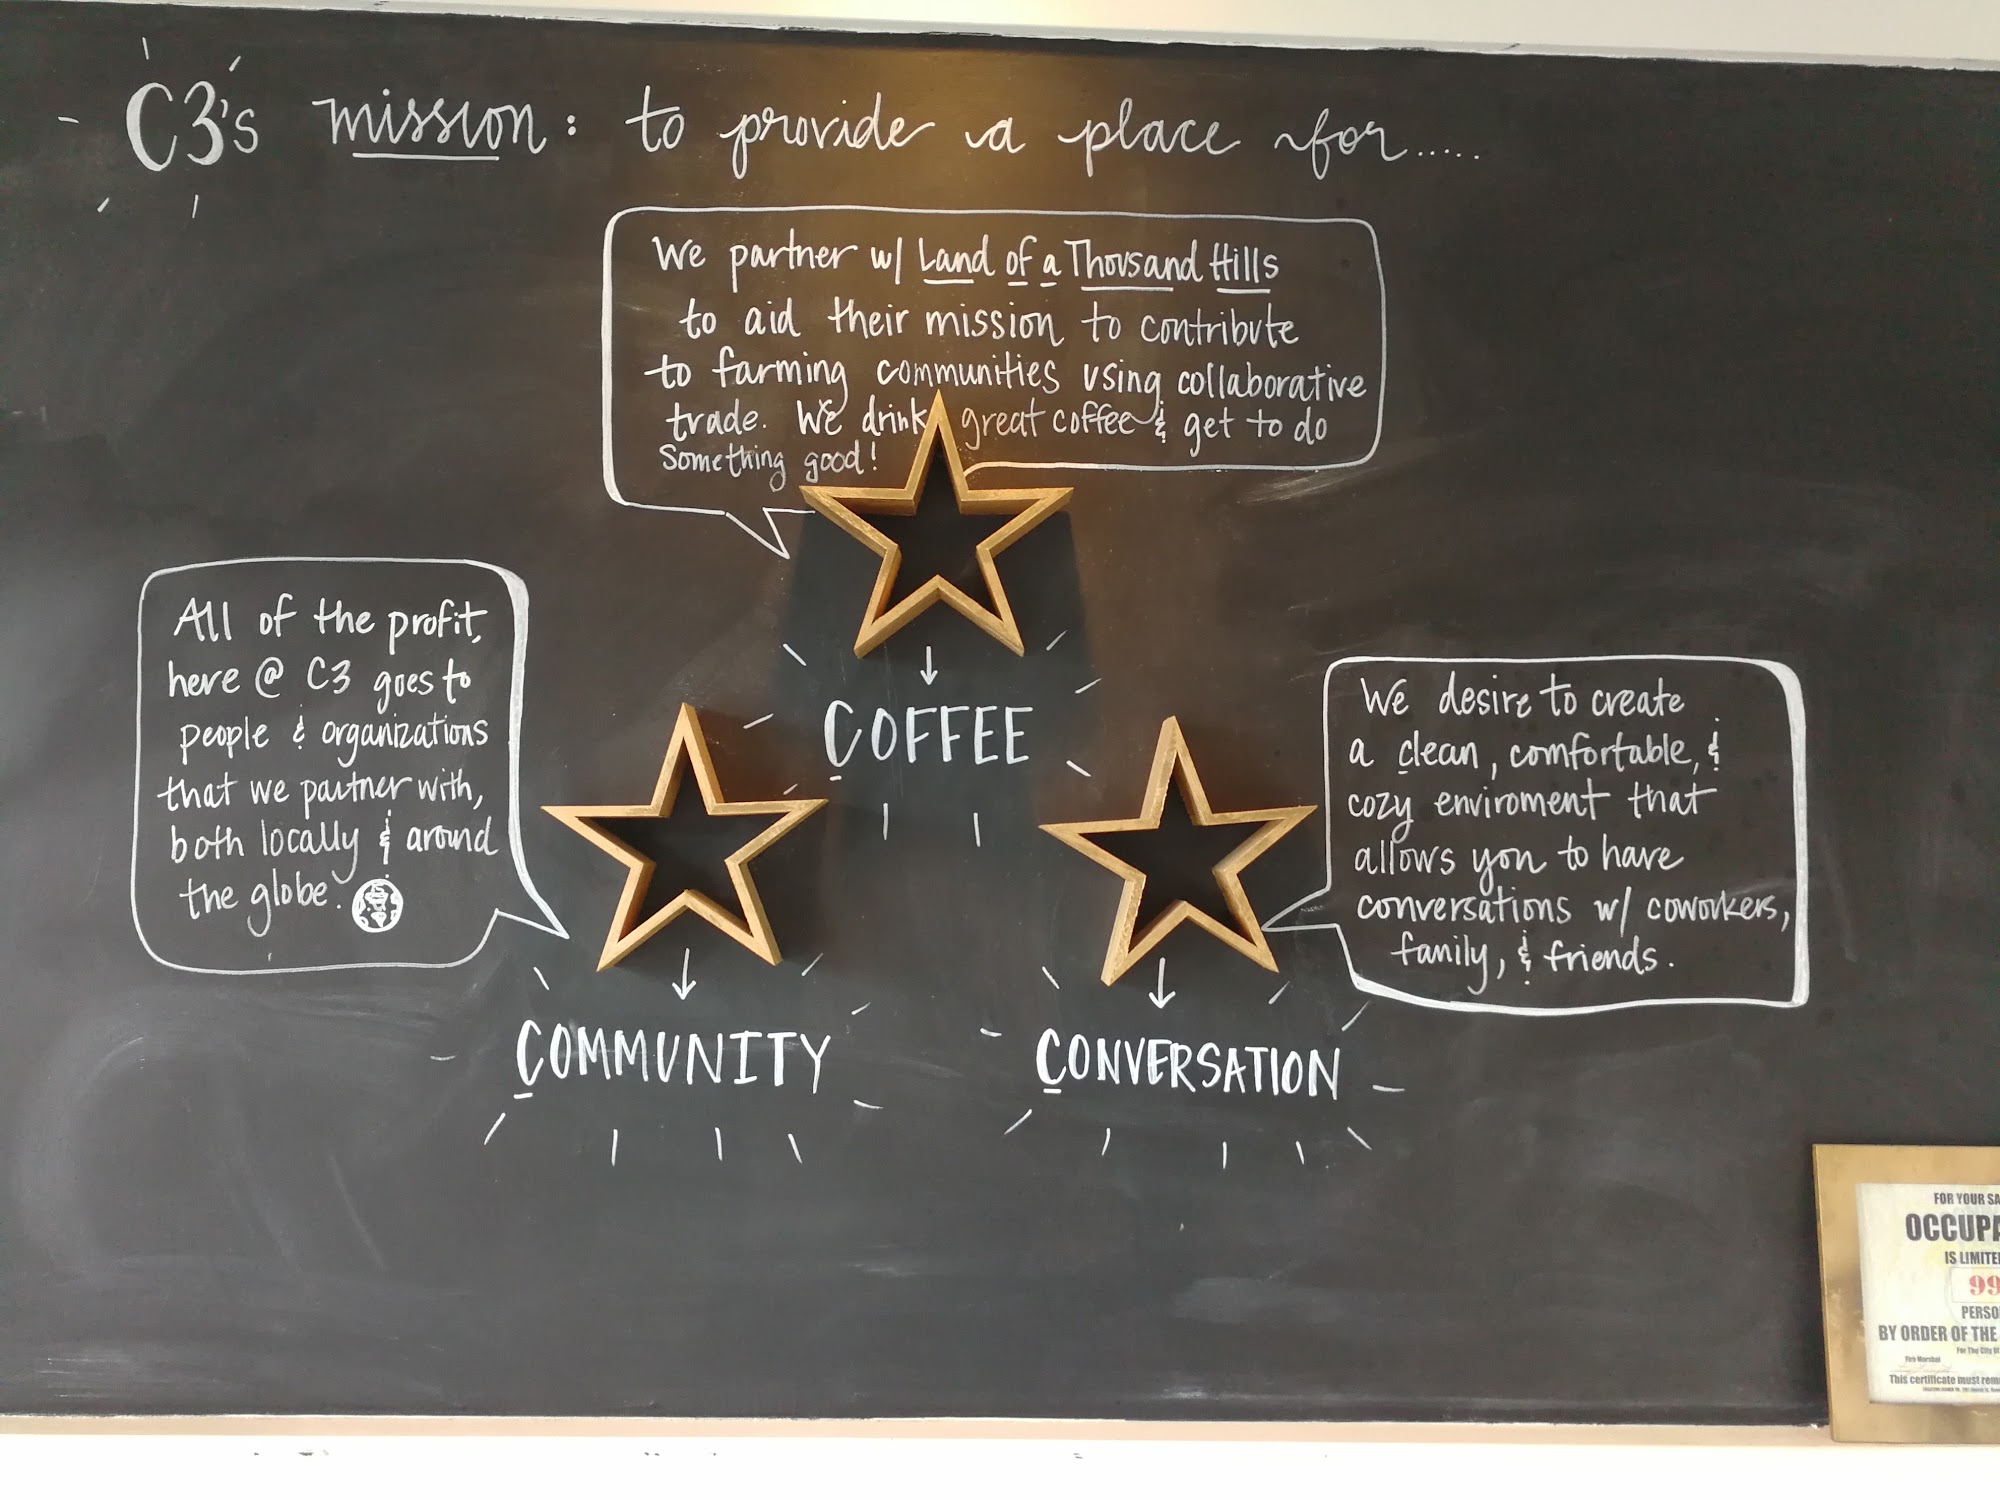 C3's mission: to provide a place for.....
We partner w/ Land of a Thousand Hills
to aid their mission to contribute
to farming communities using collaborative
trade. We drink great coffee & get to do
something good!
COFFEE
All of the profit,
here @ C3 goes to
people & organizations
that we partner with,
both locally & around
the globe.
COMMUNITY
We desire to create
a clean, comfortable, &
cozy enviroment that
allows you to have
conversations w/ coworkers,
family, & friends.
CONVERSATION
FOR YOUR SA
OCCUPA
IS LIMITE
99
PERSO
BY ORDER OF THE
For The City Of
Fire Marshal
This certificate must rem